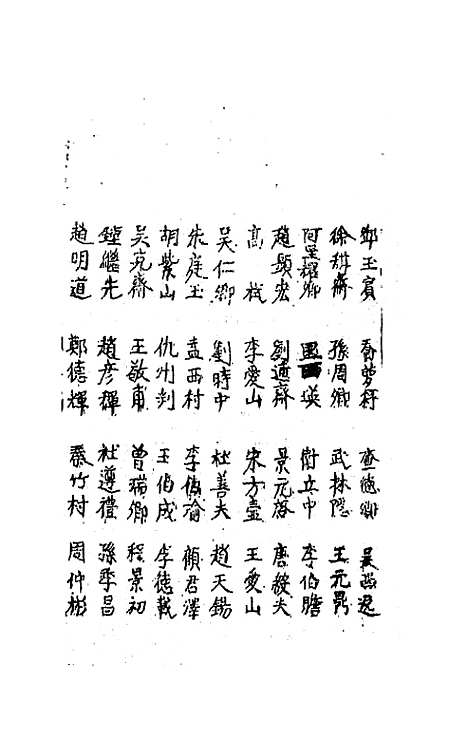 鄧玉賓 喬夢符 查德卿 吳西逸
徐甜齋 孫周卿 武林隱 王元鼎
阿里耀卿 西瑛 衛立中 李伯瞻
趙顯宏 劉逋齋 景元啓 唐毅夫
高栻 李愛山 宋方壺 王愛山
吳仁卿 劉時中 杜善夫 趙天錫
朱庭玉 孟西村 李伯瑜 顧君澤
胡紫山 仇州判 王伯成 李德載
吳克齋 王敬甫 曾瑞卿 程景初
鍾繼先 趙彥輝 杜遵禮 孫季昌
趙明道 鄭德輝 秦竹村 周仲彬